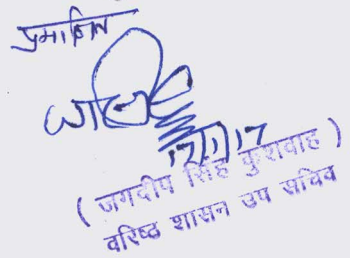 प्रमाणित
17/1/17
( जगदीप सिंह कुशवाह )
वरिष्ठ शासन उप सचिव